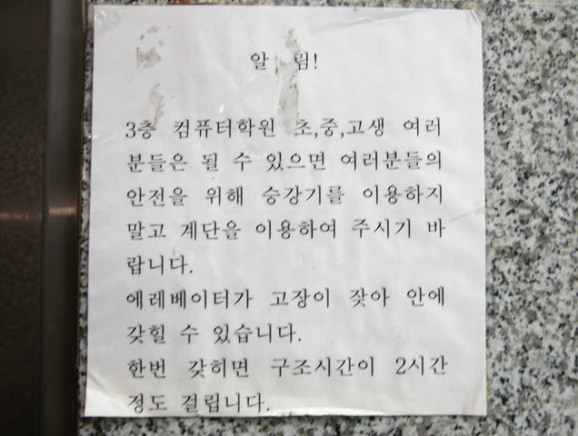 알 림!
3층 컴퓨터학원 초,중,고생 여러
분들은 될 수 있으면 여러분들의
안전을 위해 승강기를 이용하지
말고 계단을 이용하여 주시기 바
랍니다.
에레베이터가 고장이 잦아 안에
갖힐 수 있습니다.
한번 갖히면 구조시간이 2시간
정도 걸립니다.